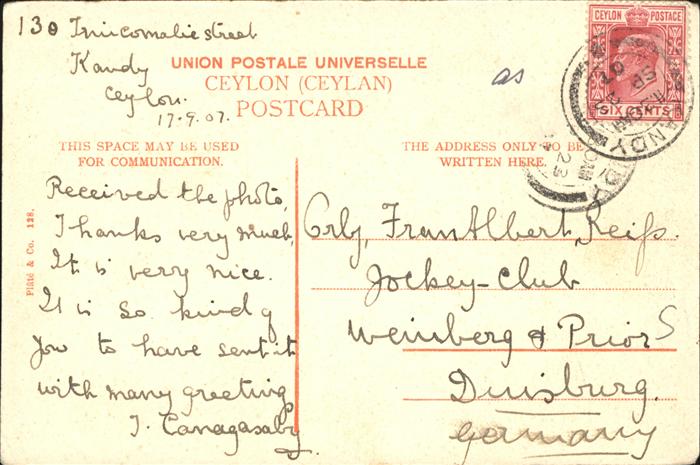 130 Trincomalie street
Kandy
Ceylon.
17-9.07.
UNION POSTALE UNIVERSELLE
CEYLON (CEYLAN)
POSTCARD
as
CEYLON POSTAGE
SIX CENTS
KANDY
SP 23
07
THIS SPACE MAY BE USED
FOR COMMUNICATION.
THE ADDRESS ONLY TO BE
WRITTEN HERE.
23
Plâté & Co. 128.
Received the photo,
Thanks very much,
It is very nice.
It is so kind of
you to have sent it
with many greeting
T. Canagasaby
Frau Albert Reifs.
Jockey-Club
Weinberg & Prior
Duisburg.
Germany